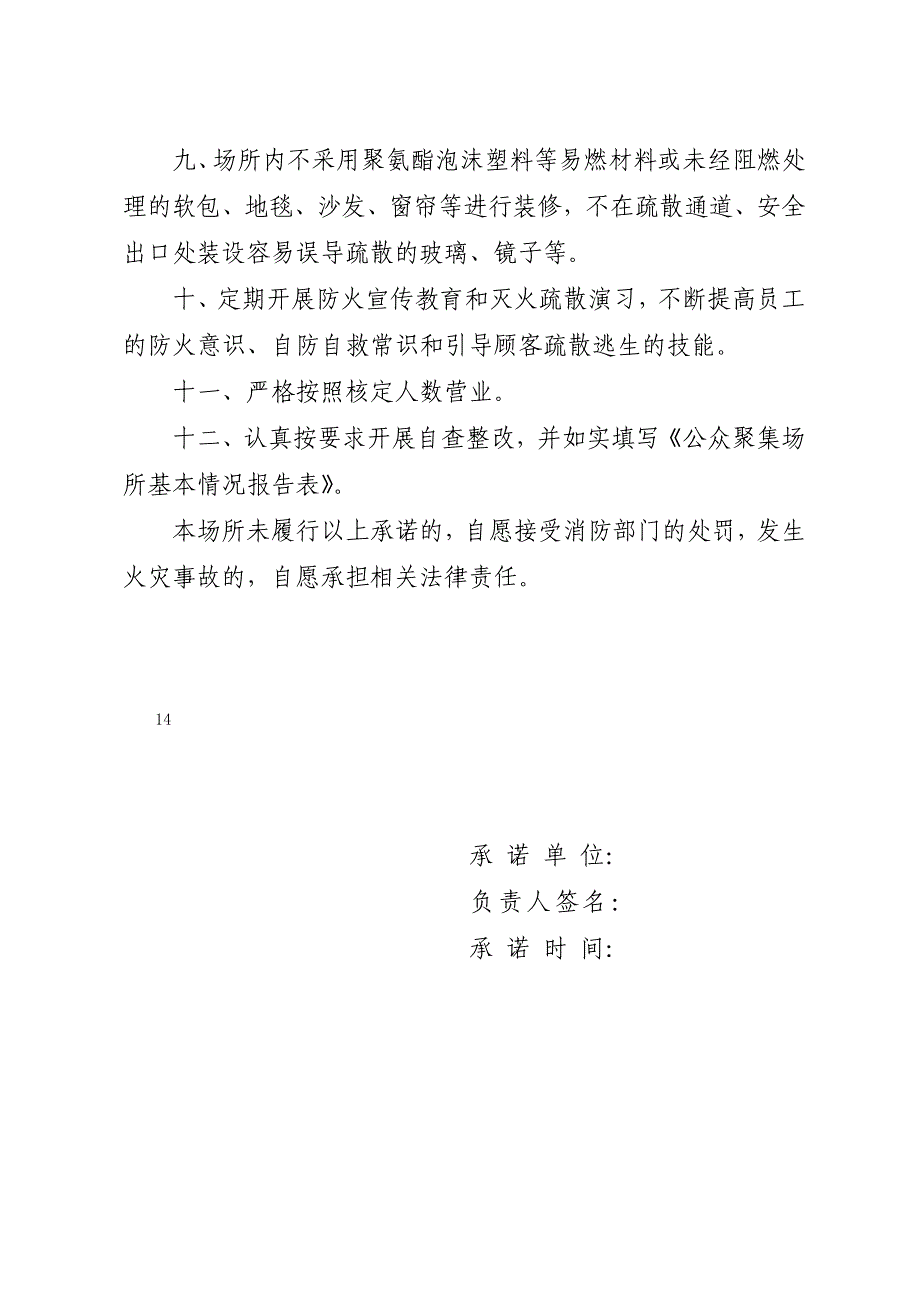 九、场所内不采用聚氨酯泡沫塑料等易燃材料或未经阻燃处
理的软包、地毯、沙发、窗帘等进行装修，不在疏散通道、安全
出口处装设容易误导疏散的玻璃、镜子等。
十、定期开展防火宣传教育和灭火疏散演习，不断提高员工
的防火意识、自防自救常识和引导顾客疏散逃生的技能。
十一、严格按照核定人数营业。
十二、认真按要求开展自查整改，并如实填写《公众聚集场
所基本情况报告表》。
本场所未履行以上承诺的，自愿接受消防部门的处罚，发生
火灾事故的，自愿承担相关法律责任。
14
承 诺 单 位：
负责人签名：
承 诺 时 间：